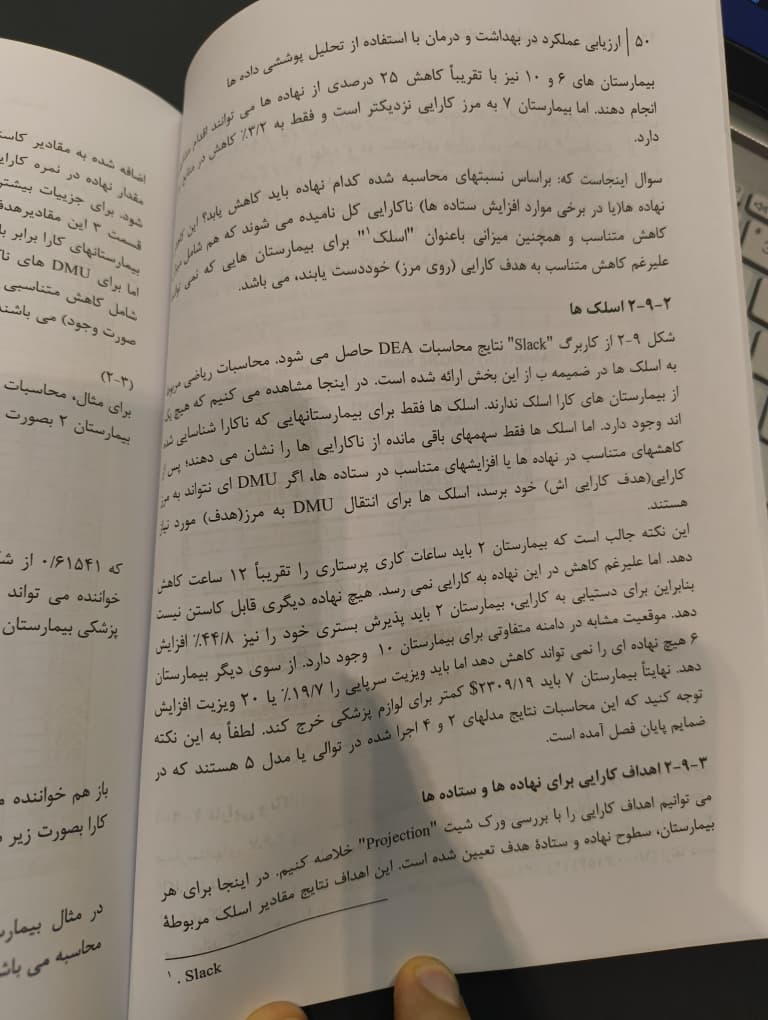 ۵۰ | ارزیابی عملکرد در بهداشت و درمان با استفاده از تحلیل پوششی داده ها
بیمارستان های ۶ و ۱۰ نیز با تقریباً کاهش ۲۵ درصدی از نهاده ها می توانند اقدام
انجام دهند. اما بیمارستان ۷ به مرز کارایی نزدیکتر است و فقط به ۳/۲٪ کاهش در منابع
دارد.
سوال اینجاست که: براساس نسبتهای محاسبه شده کدام نهاده باید کاهش یابد؟ این
نهاده ها(یا در برخی موارد افزایش ستاده ها) ناکارایی کل نامیده می شوند که هم شامل
کاهش متناسب و همچنین میزانی باعنوان "اسلک۱" برای بیمارستان هایی که نمی
علیرغم کاهش متناسب به هدف کارایی (روی مرز) خوددست یابند، می باشد.
۲-۹-۲ اسلک ها
شکل ۹-۲ از کاربرگ "Slack" نتایج محاسبات DEA حاصل می شود. محاسبات ریاضی
به اسلک ها در ضمیمه ب از این بخش ارائه شده است. در اینجا مشاهده می کنیم که هیچ یک
از بیمارستان های کارا اسلک ندارند. اسلک ها فقط برای بیمارستانهایی که ناکارا شناسایی شده
اند وجود دارد. اما اسلک ها فقط سهمهای باقی مانده از ناکارایی ها را نشان می دهند؛ پس از
کاهشهای متناسب در نهاده ها یا افزایشهای متناسب در ستاده ها، اگر DMU ای نتواند به مرز
کارایی(هدف کارایی اش) خود برسد، اسلک ها برای انتقال DMU به مرز(هدف) مورد نیاز
هستند.
این نکته جالب است که بیمارستان ۲ باید ساعات کاری پرستاری را تقریباً ۱۲ ساعت کاهش
دهد. اما علیرغم کاهش در این نهاده به کارایی نمی رسد. هیچ نهاده دیگری قابل کاستن نیست
بنابراین برای دستیابی به کارایی، بیمارستان ۲ باید پذیرش بستری خود را نیز ۴۴/۸٪ افزایش
دهد. موقعیت مشابه در دامنه متفاوتی برای بیمارستان ۱۰ وجود دارد. از سوی دیگر بیمارستان
۶ هیچ نهاده ای را نمی تواند کاهش دهد اما باید ویزیت سرپایی را ۱۹/۷٪ یا ۲۰ ویزیت افزایش
دهد. نهایتاً بیمارستان ۷ باید ۲۳۰۹/۱۹$ کمتر برای لوازم پزشکی خرج کند. لطفاً به این نکته
توجه کنید که این محاسبات نتایج مدلهای ۲ و ۴ اجرا شده در توالی یا مدل ۵ هستند که در
ضمایم پایان فصل آمده است.
۲-۹-۳ اهداف کارایی برای نهاده ها و ستاده ها
می توانیم اهداف کارایی را با بررسی ورک شیت "Projection" خلاصه کنیم. در اینجا برای هر
بیمارستان، سطوح نهاده و ستادهٔ هدف تعیین شده است. این اهداف نتایج مقادیر اسلک مربوطهٔ
۱ . Slack
اضافه شده به مقادیر
مقدار نهاده در نمره
شود. برای جزییات بیشتر
قسمت ۳ این مقادیرهدف
بیمارستانهای کارا برابر با
اما برای DMU های
شامل کاهش متناسبی
صورت وجود) می باشند
(۲-۳)
برای مثال، محاسبات
بیمارستان ۲ بصورت
که ۰/۶۱۵۴۱ از
خواننده می تواند
پزشکی بیمارستان
باز هم خواننده
کارا بصورت زیر
در مثال
محاسبه می